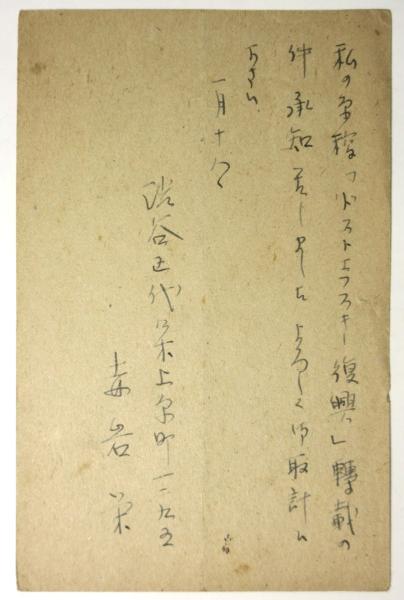 私の原稿「ドストエフスキー復興」轉載の
件承知致しましたよろしく御取計ひ
下さい
一月十八
渋谷区代々木上原町一二五五
壽岩 栄